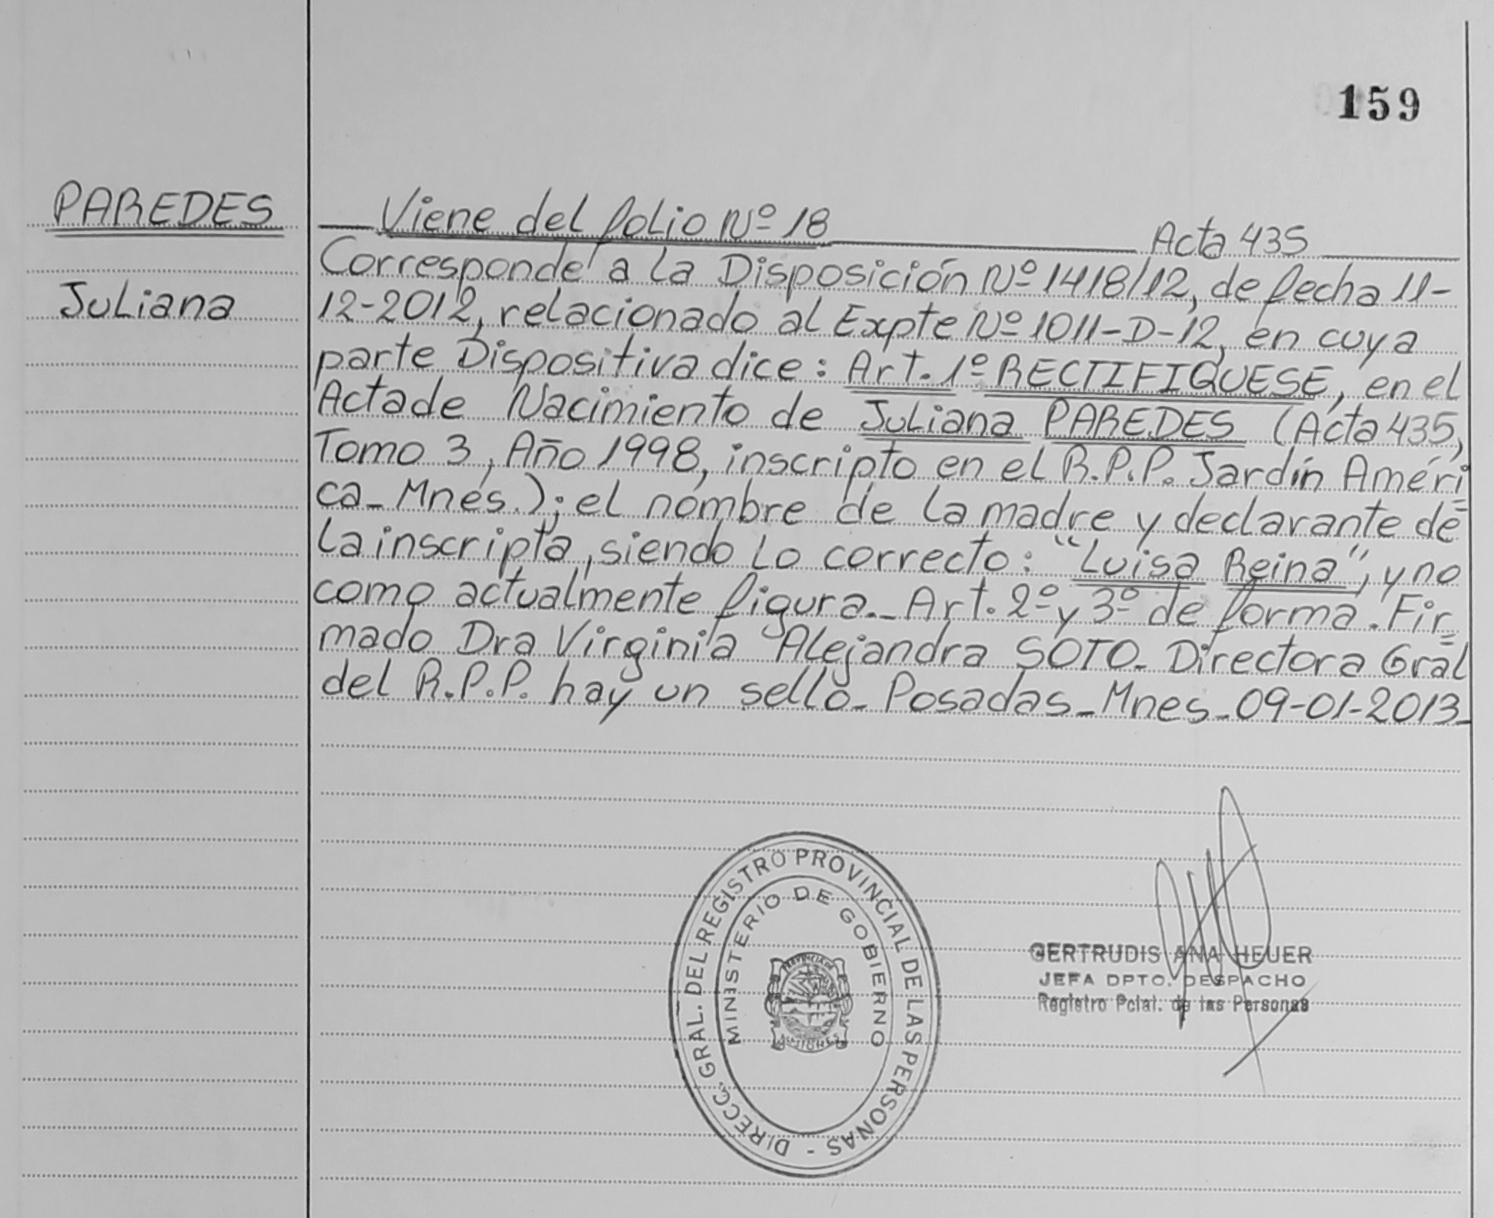 159
PAREDES
Juliana
Viene del folio Nº 18 Acta 435
Corresponde a la Disposición Nº 1418/12, de fecha 11-
12-2012, relacionado al Expte Nº 1011-D-12, en cuya
parte Dispositiva dice: Art. 1º RECTIFIQUESE, en el
Acta de Nacimiento de Juliana PAREDES (Acta 435,
Tomo 3, Año 1998, inscripto en el R.P.P. Jardín Améri
ca_ Mnes.); el nombre de la madre y declarante de
la inscripta, siendo lo correcto: "Luisa Reina", y no
como actualmente figura._ Art. 2º y 3º de forma. Fir
mado Dra Virginia Alejandra SOTO_ Directora Gral
del R.P.P. hay un sello_ Posadas_ Mnes_ 09-01-2013_
DIRECC. GRAL. DEL REGISTRO PROVINCIAL DE LAS PERSONAS -
MINISTERIO DE GOBIERNO
PROVINCIA DE
MISIONES
GERTRUDIS ANA HEUER
JEFA DPTO. DESPACHO
Registro Pcial. de las Personas